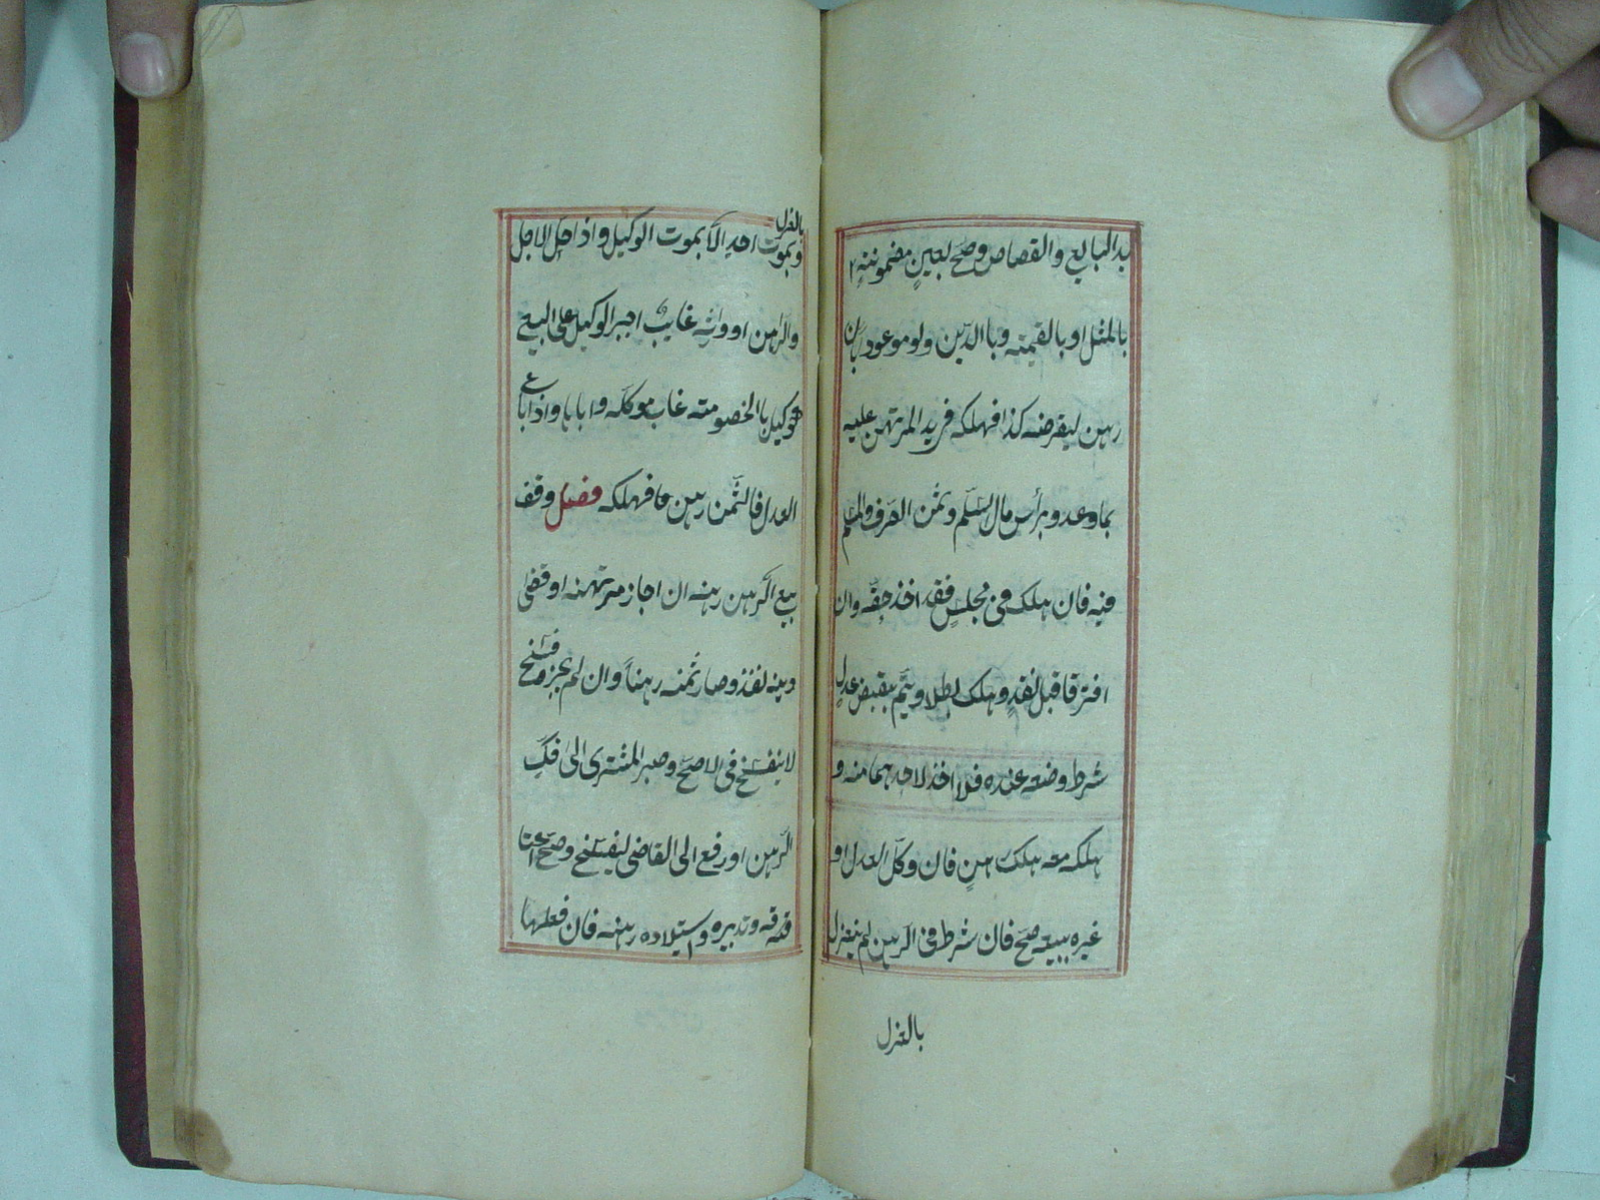 يد البايع والقصاص وصح بعين مضمونة
بالمثل او بالقيمة وبا الدين ولو موعودا بان
رهن ليقرضه كذا فهلكه فريد المرتهن عليه
بما وعد وبرأس مال السلم وثمن الصرف والمسلم
فيه فان هلك فى مجلس فقد اخذ حقه وان
افترقا قبل نقد وهلك بطلا ويتم بقبض عدل
شرط وضعه عنده فلا اخذ لاحدهما منه و
هلكه معه هلك رهن فان وكل العدل او
غيره ببيعه صح فان شرط فى الرهن لم ينعزل
بالعزل
بالعزل
وبموت احد الا بموت الوكيل واذا حل الاجل
والراهن او وارثه غايب اجبر الوكيل على البيع
كوكيل با الخصومته غاب موكله واباها واذا باع
العدل فالثمن رهن فهلكه فصل وقف
بيع الراهن رهنه ان اجاز مرتهنه او قضى
دينه نفذ وصار ثمنه رهناً وان لم يجز وفسخ
لا ينفسخ فى الاصح وصبر المشترى الى فك
الرهن او رفع الى القاضى ليفسخ وصح اعتا
قه وتدبيره واستيلاده رهنه فان فعلها